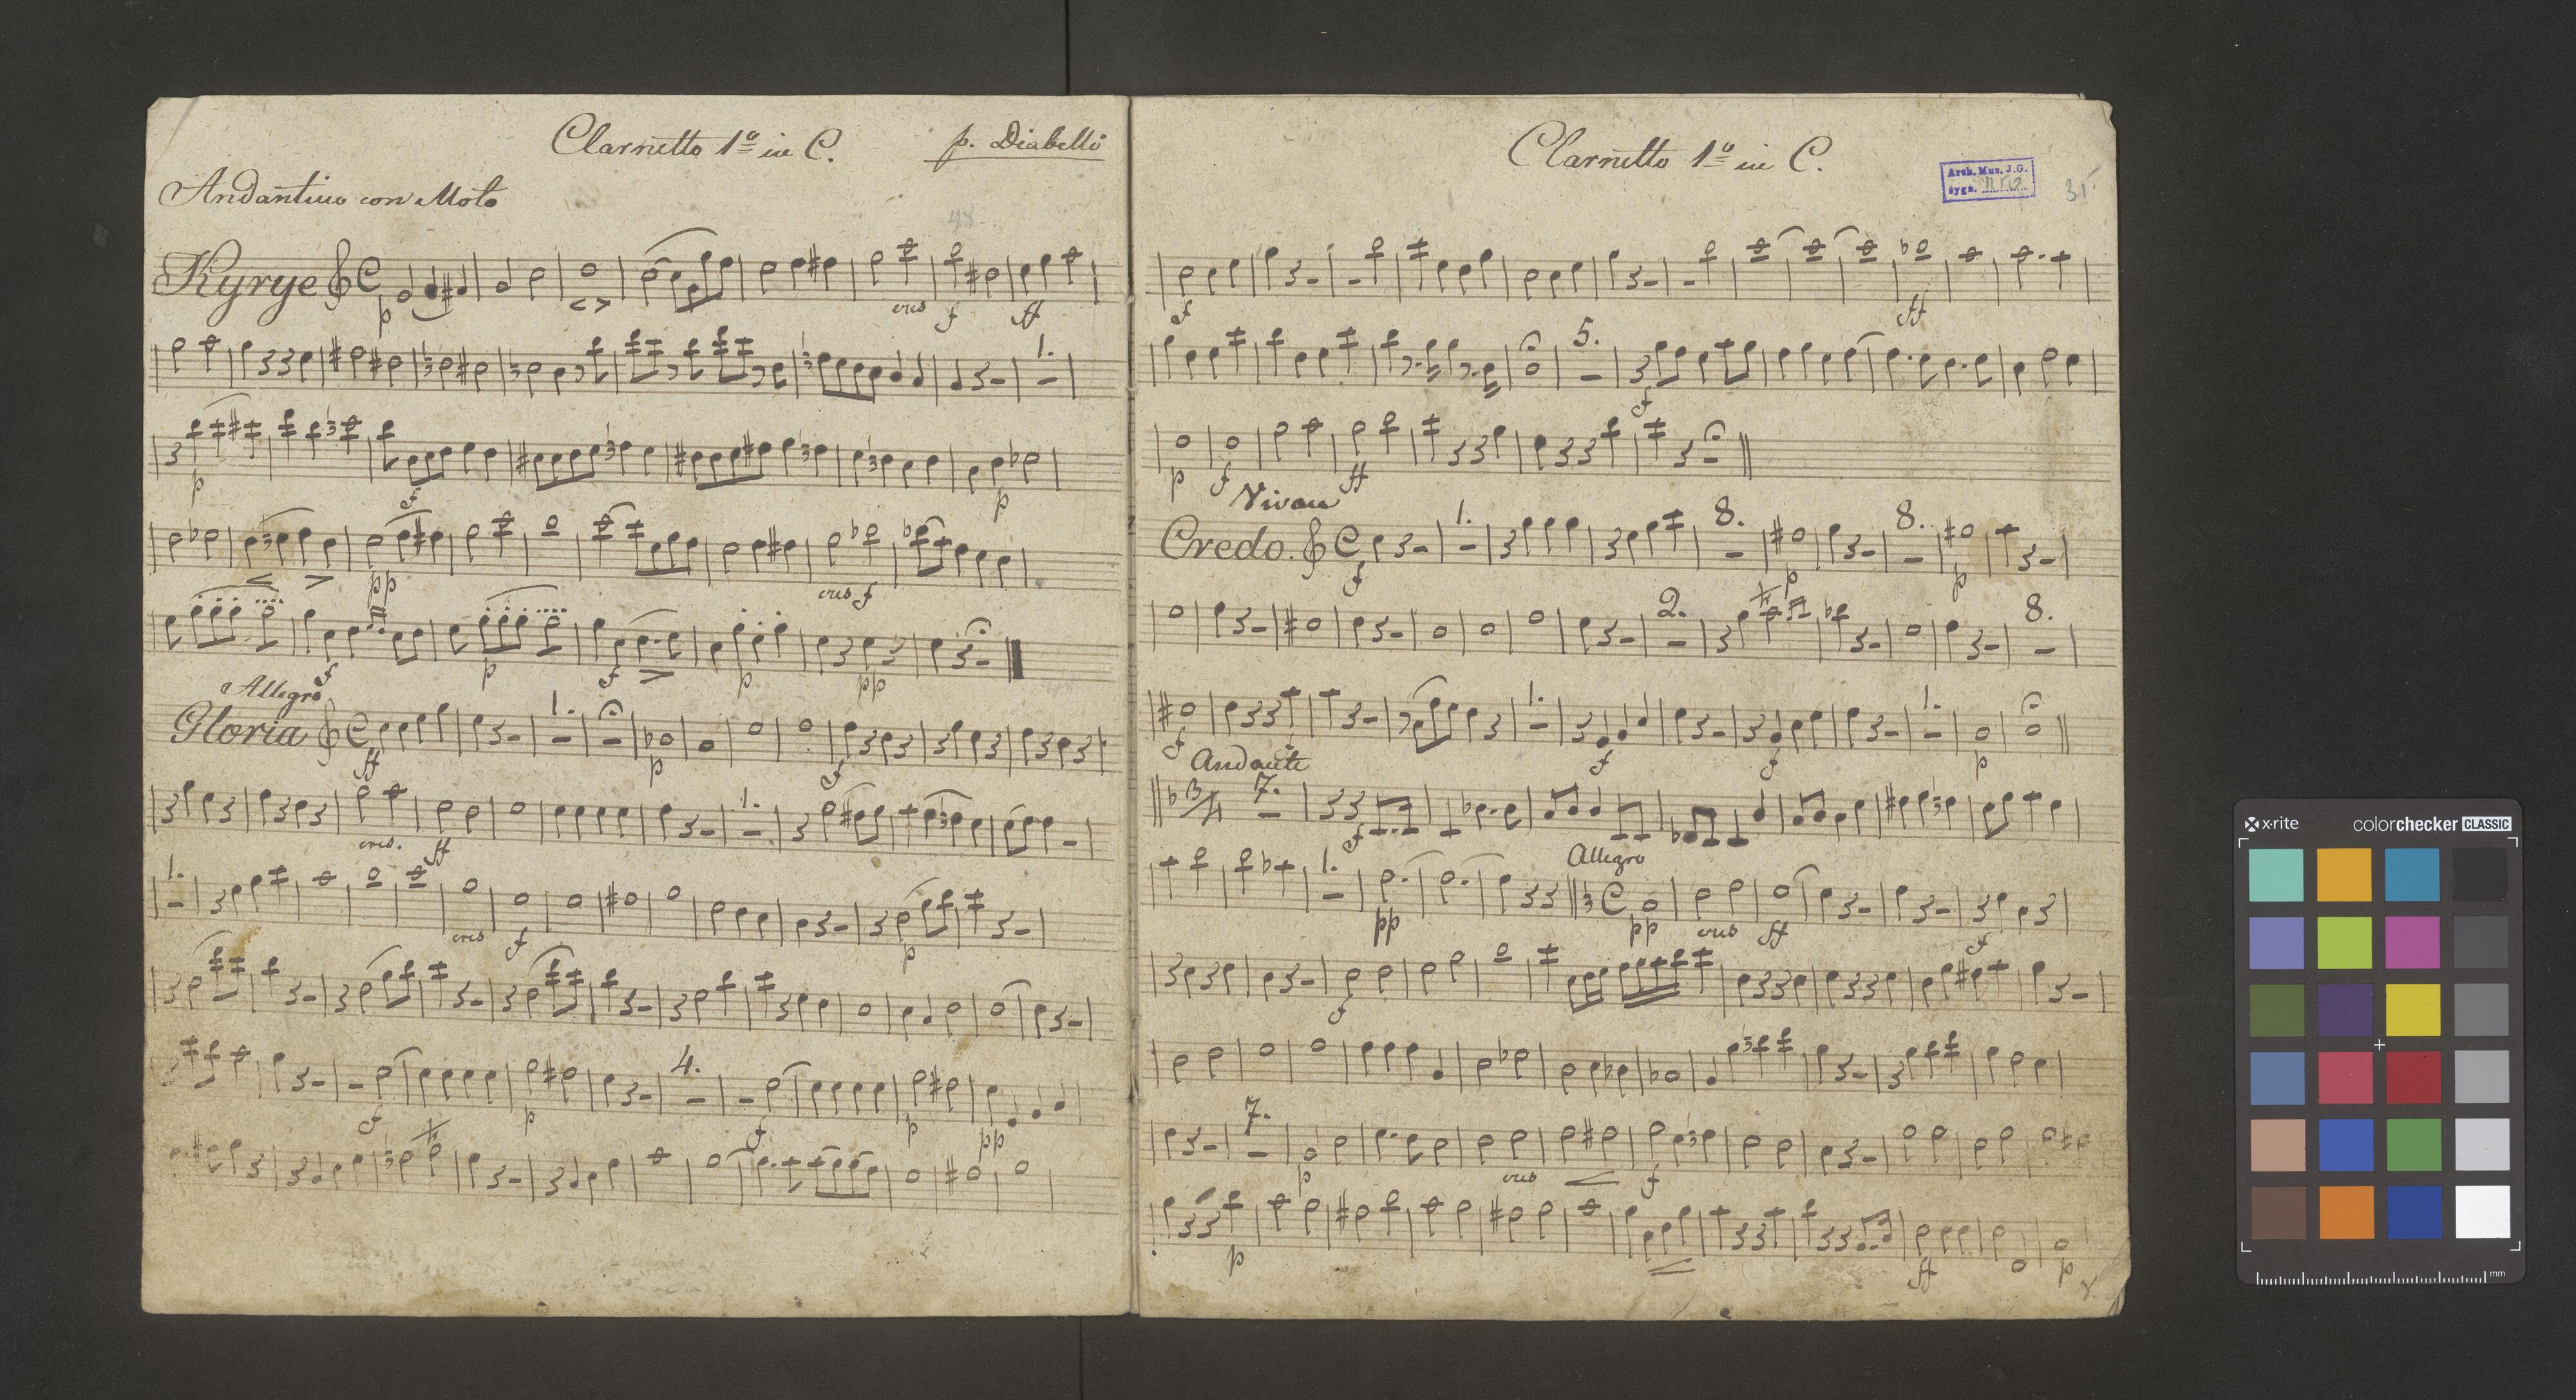 Clarnetto 1º in C.
p. Diabelli
Andantino con Moto
Kyrye
p cres f ff
1.
p f p
pp cres f
f p f p pp
Allegro
Gloria
1.
ff p f
1.
cres. ff
1.
cres f p
4.
f p f p pp
Clarnetto 1º in C.
Arch. Muz. J.G.
sygn.
35
f ff
5.
f
p f ff
Vivace
Credo.
1. 8. 8.
f p p
2. 8.
1. 1.
f f f p
Andante
3/4 7.
f
1. Allegro
pp pp cres ff f
f
7.
p cres f
p ff p
x-rite
colorchecker CLASSIC
mm